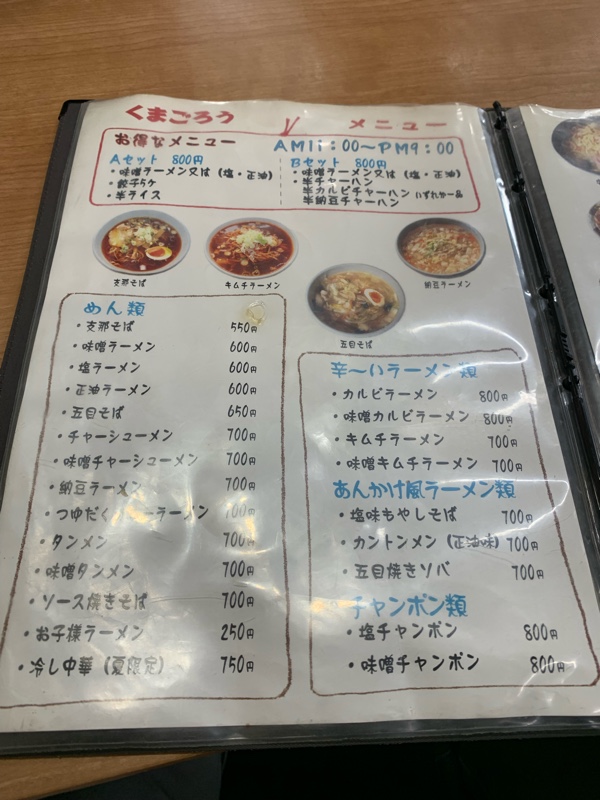 くまごろう メニュー
お得なメニュー AM11:00〜PM9:00
Aセット 800円
・味噌ラーメン又は(塩・正油)
・餃子5ヶ
・半ライス
Bセット 800円
・味噌ラーメン又は(塩・正油)
・半チャーハン
半カルビチャーハン いずれか一品
半納豆チャーハン
支那そば
キムチラーメン
納豆ラーメン
五目そば
めん類
・支那そば 550円
・味噌ラーメン 600円
・塩ラーメン 600円
・正油ラーメン 600円
・五目そば 650円
・チャーシューメン 700円
・味噌チャーシューメン 700円
・納豆ラーメン 700円
・つゆだく ラーメン 700円
・タンメン 700円
・味噌タンメン 700円
・ソース焼きそば 700円
・お子様ラーメン 250円
・冷し中華(夏限定) 750円
辛〜いラーメン類
・カルビラーメン 800円
・味噌カルビラーメン 800円
・キムチラーメン 700円
・味噌キムチラーメン 700円
あんかけ風ラーメン類
・塩味もやしそば 700円
・カントンメン(正油味) 700円
・五目焼きソバ 700円
チャンポン類
・塩チャンポン 800円
・味噌チャンポン 800円